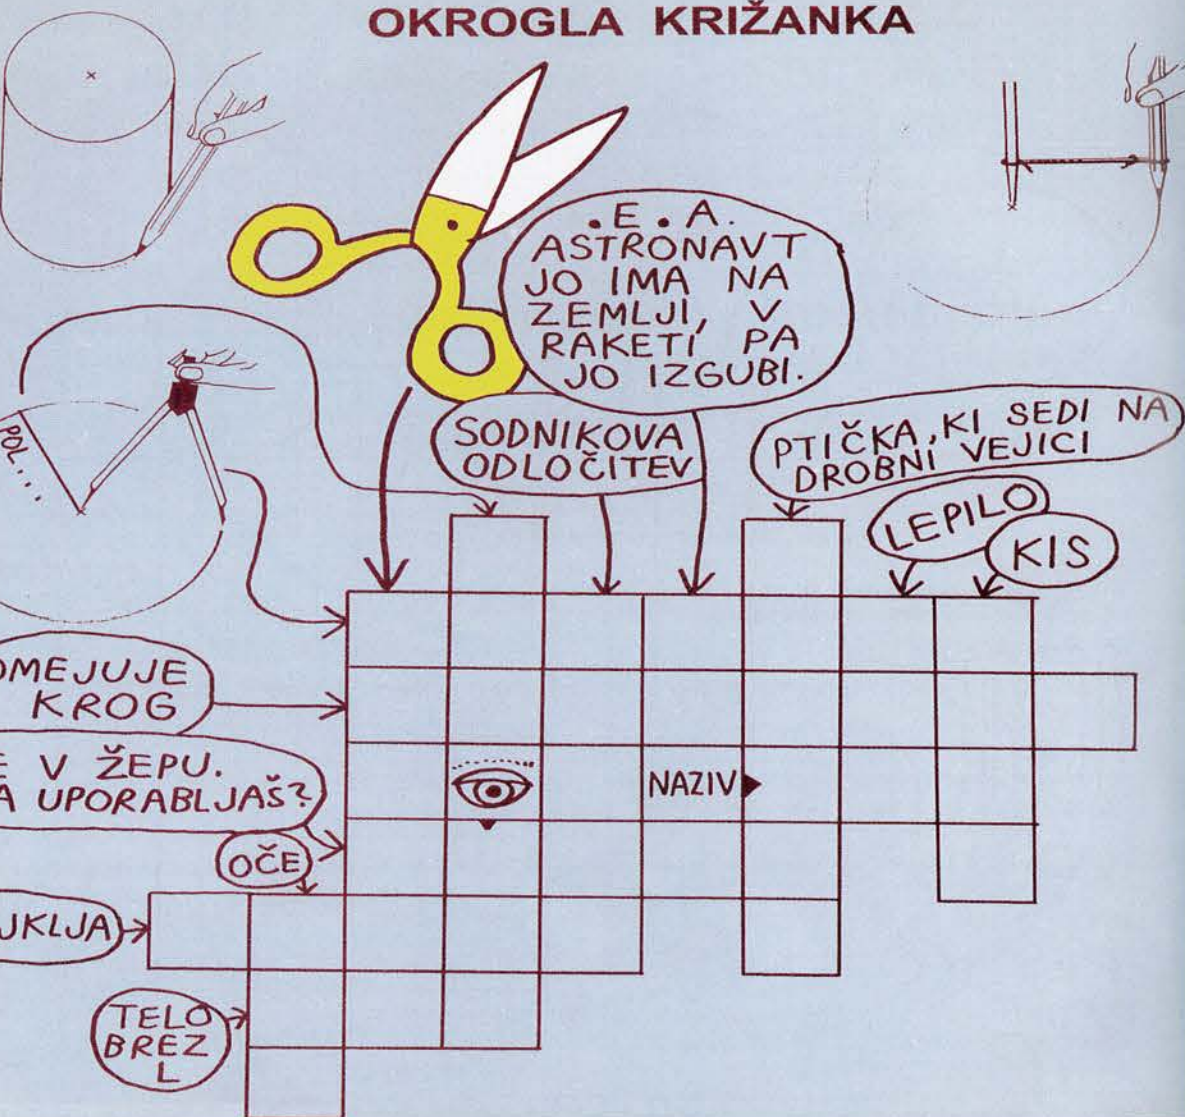 OKROGLA KRIŽANKA
.E.A.
ASTRONAVT
JO IMA NA
ZEMLJI, V
RAKETI PA
JO IZGUBI.
SODNIKOVA
ODLOČITEV
PTIČKA, KI SEDI NA
DROBNI VEJICI
LEPILO
KIS
POL...
OMEJUJE
KROG
E V ŽEPU.
A UPORABLJAŠ?
NAZIV
OČE
UKLJA
TELO
BREZ
L